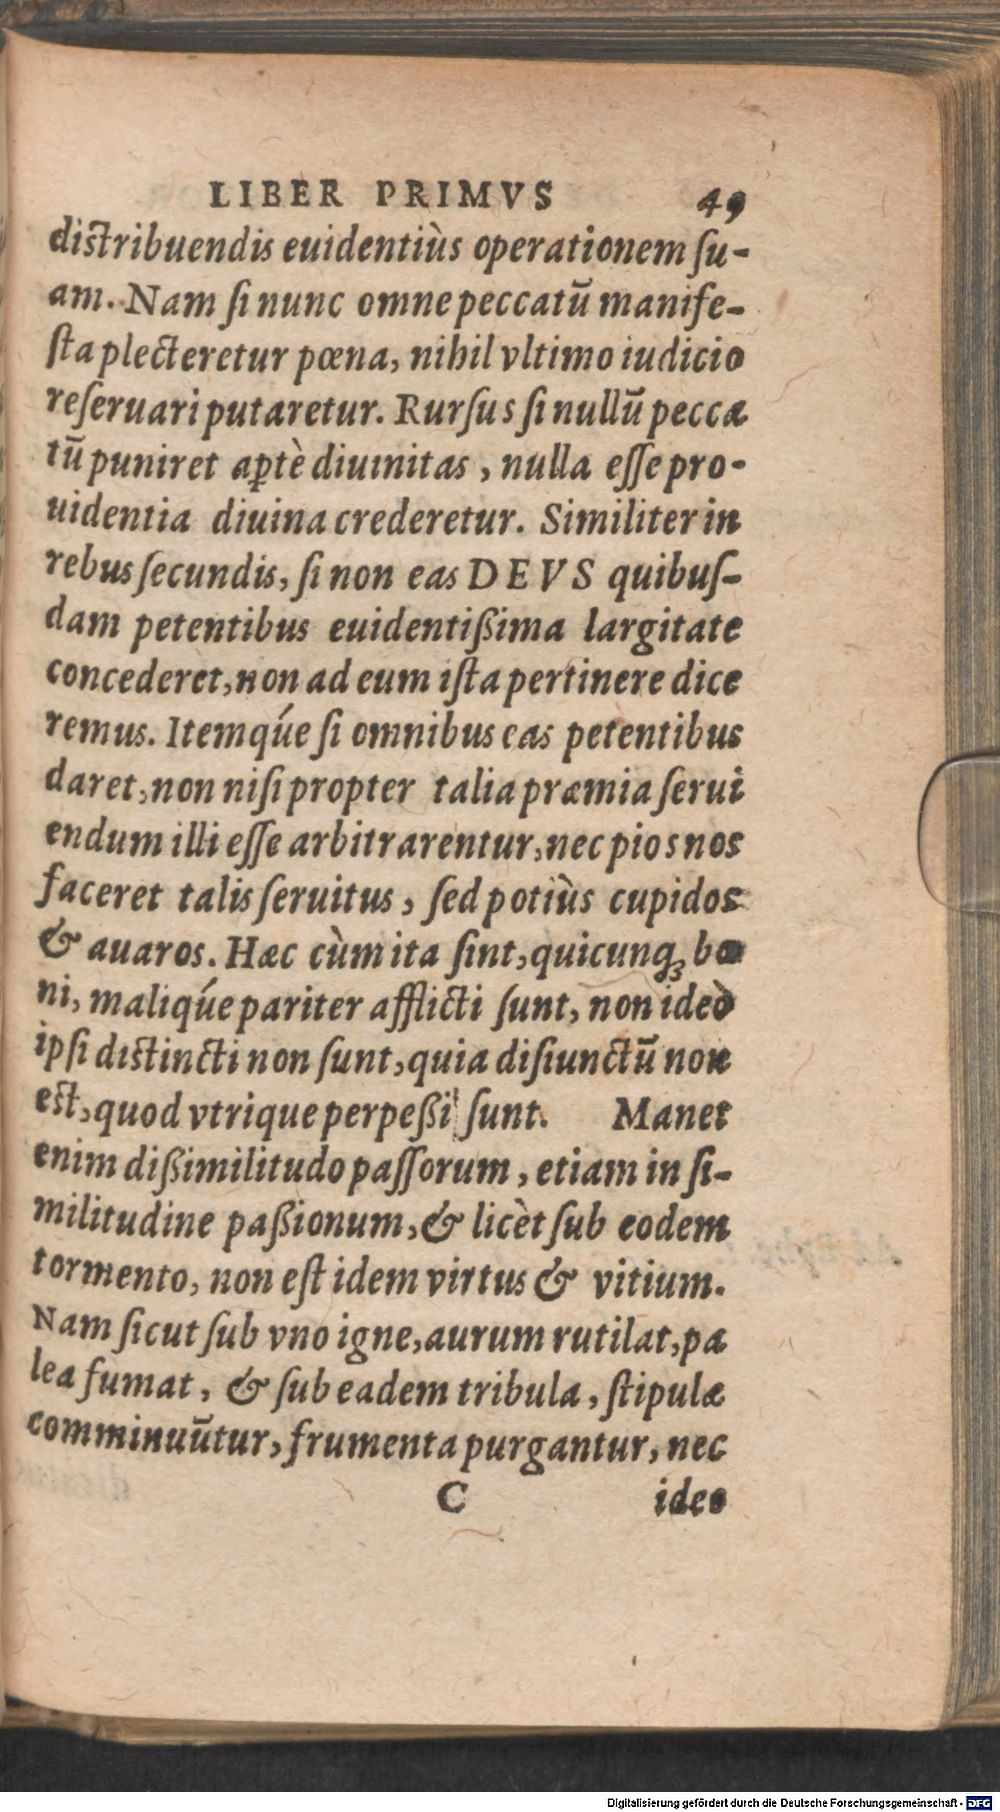 LIBER PRIMVS 49
distribuendis euidentiùs operationem ſu-
am. Nam ſi nunc omne peccatũ manife-
ſta plecteretur pœna, nihil vltimo iudicio
reſeruari putaretur. Rurſus ſi nullũ pecca
tũ puniret aꝑtè diuinitas, nulla eſſe pro-
uidentia diuina crederetur. Similiter in
rebus ſecundis, ſi non eas DEVS quibuſ-
dam petentibus euidentißima largitate
concederet, non ad eum iſta pertinere dice
remus. Itemq́ue ſi omnibus eas petentibus
daret, non niſi propter talia præmia ſerui
endum illi eſſe arbitrarentur, nec pios nos
faceret talis ſeruitus, ſed potiùs cupidos
& auaros. Hæc cùm ita ſint, quicunq; bo
ni, maliq́ue pariter afflicti ſunt, non ideò
ipſi diſtincti non ſunt, quia diſiunctũ non
eſt, quod vtrique perpeßi ſunt. Manet
enim dißimilitudo paſſorum, etiam in ſi-
militudine paßionum, & licèt ſub eodem
tormento, non eſt idem virtus & vitium.
Nam ſicut ſub vno igne, aurum rutilat, pa
lea fumat, & ſub eadem tribula, ſtipulæ
comminuũtur, frumenta purgantur, nec
C ideo
Digitalisierung gefördert durch die Deutsche Forschungsgemeinschaft - DFG